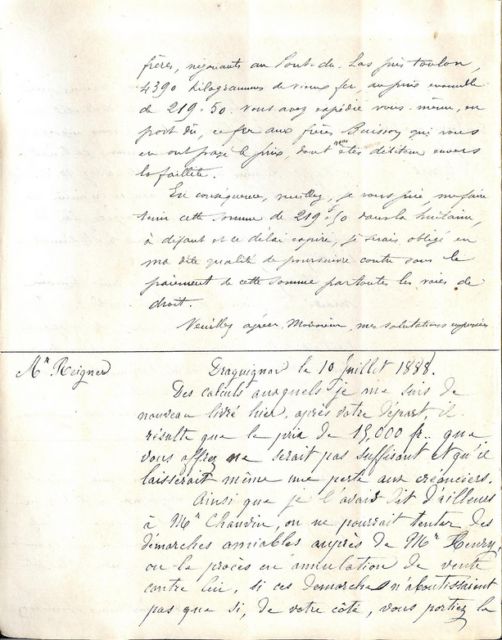 frères, negociants au Pont-du-Las près Toulon,
4390 kilogrammes de vieux fer, au prix ensemble
de 219-50. Vous avez expédié vous-même, en
port dû, ce fer aux frères Buisson qui vous
en ont payé le prix, dont vous êtes débiteur envers
la faillite.
En conséquence, veuillez, je vous prie, me faire
tenir cette somme de 219-50 dans la huitaine,
à défaut et ce délai expiré, je serais obligé en
ma dite qualité de poursuivre contre vous le
paiement de cette somme par toutes les voies de
droit.
Veuillez agréer, Monsieur, mes salutations
Mr Reignier
Draguignan le 10 Juillet 1888.
Des calculs auxquels je me suis de
nouveau livré hier, après votre départ, il
résulte que le prix de 15,000 fr. que
vous offrez ne serait pas suffisant et qu'il
laisserait même une perte aux créanciers.
Ainsi que je l'avais dit d'ailleurs
à Mr Chaudin, on ne pourrait tenter des
démarches amiables auprès de Mr Henry,
ou le procès en annulation de vente
contre lui, si ces demarches n'aboutissaient
pas que si, de votre côté, vous portiez la